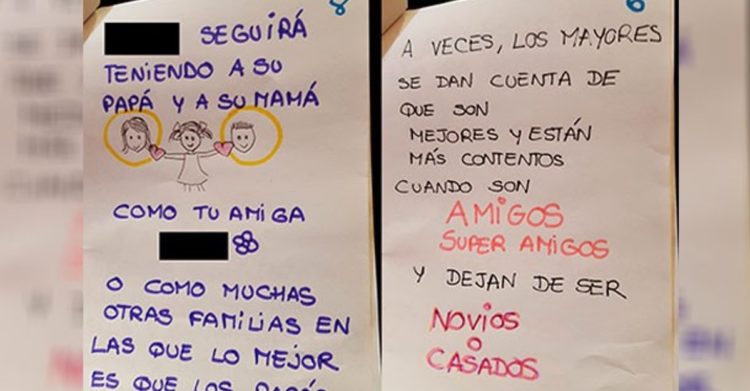 8
SEGUIRÁ
TENIENDO A SU
PAPÁ Y A SU MAMÁ
COMO TU AMIGA
O COMO MUCHAS
OTRAS FAMILIAS EN
LAS QUE LO MEJOR
ES QUE LOS
6
A VECES, LOS MAYORES
SE DAN CUENTA DE
QUE SON
MEJORES Y ESTÁN
MÁS CONTENTOS
CUANDO SON
AMIGOS
SUPER AMIGOS
Y DEJAN DE SER
NOVIOS
O
CASADOS